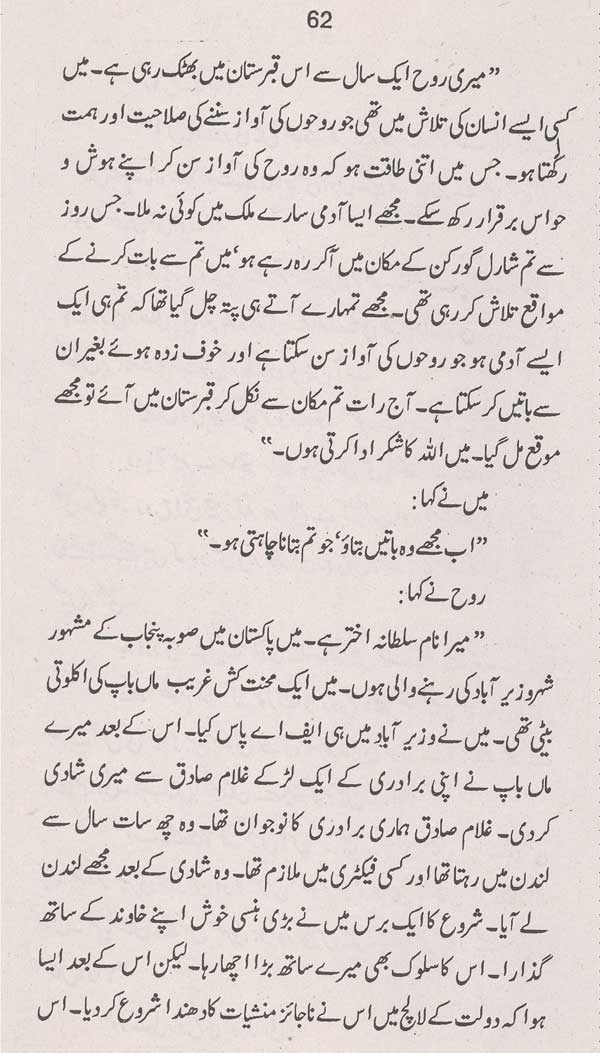 62
”میری روح ایک سال سے اس قبرستان میں بھٹک رہی ہے۔ میں
کسی ایسے انسان کی تلاش میں تھی جو روحوں کی آواز سننے کی صلاحیت اور ہمت
رکھتا ہو۔ جس میں اتنی طاقت ہو کہ وہ روح کی آواز سن کر اپنے ہوش و
حواس برقرار رکھ سکے۔ مجھے ایسا آدمی سارے ملک میں کوئی نہ ملا۔ جس روز
سے تم شارل گورکن کے مکان میں آکر رہ رہے ہو‘ میں تم سے بات کرنے کے
مواقع تلاش کر رہی تھی۔ مجھے تمہارے آتے ہی پتہ چل گیا تھا کہ تم ہی ایک
ایسے آدمی ہو جو روحوں کی آواز سن سکتا ہے اور خوف زدہ ہوئے بغیر ان
سے باتیں کر سکتا ہے۔ آج رات تم مکان سے نکل کر قبرستان میں آئے تو مجھے
موقع مل گیا۔ میں اللہ کا شکر ادا کرتی ہوں۔“
میں نے کہا:
”اب مجھے وہ باتیں بتاؤ‘ جو تم بتانا چاہتی ہو۔“
روح نے کہا:
”میرا نام سلطانہ اختر ہے۔ میں پاکستان میں صوبہ پنجاب کے مشہور
شہر وزیر آباد کی رہنے والی ہوں۔ میں ایک محنت کش غریب ماں باپ کی اکلوتی
بیٹی تھی۔ میں نے وزیر آباد میں ہی ایف اے پاس کیا۔ اس کے بعد میرے
ماں باپ نے اپنی برادری کے ایک لڑکے غلام صادق سے میری شادی
کر دی۔ غلام صادق ہماری برادری کا نوجوان تھا۔ وہ چھ سات سال سے
لندن میں رہتا تھا اور کسی فیکٹری میں ملازم تھا۔ وہ شادی کے بعد مجھے لندن
لے آیا۔ شروع کا ایک برس میں نے بڑی ہنسی خوش اپنے خاوند کے ساتھ
گذارا۔ اس کا سلوک بھی میرے ساتھ بڑا اچھا رہا۔ لیکن اس کے بعد ایسا
ہوا کہ دولت کے لالچ میں اس نے ناجائز منشیات کا دھندا شروع کر دیا۔ اس